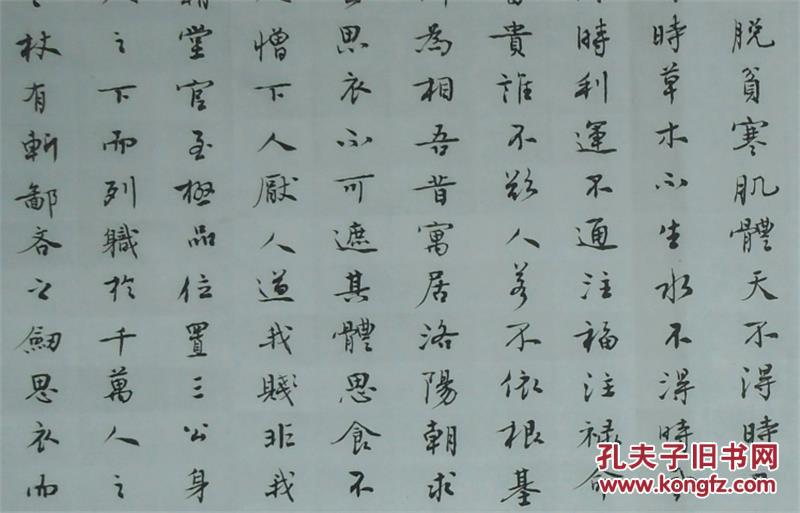 脱貧寒肌體天不得時
時草木不生水不得時
時利運不通注福注禄命
貴誰不欲人若不依根基
為相吾昔寓居洛陽朝求
思衣不可遮其體思食不
憎下人厭人道我賤非我
堂官至極品位置三公身
之下而列職於千萬人之
杖有斬鄙吝之劍思衣而
孔夫子旧书网
www.kongfz.com